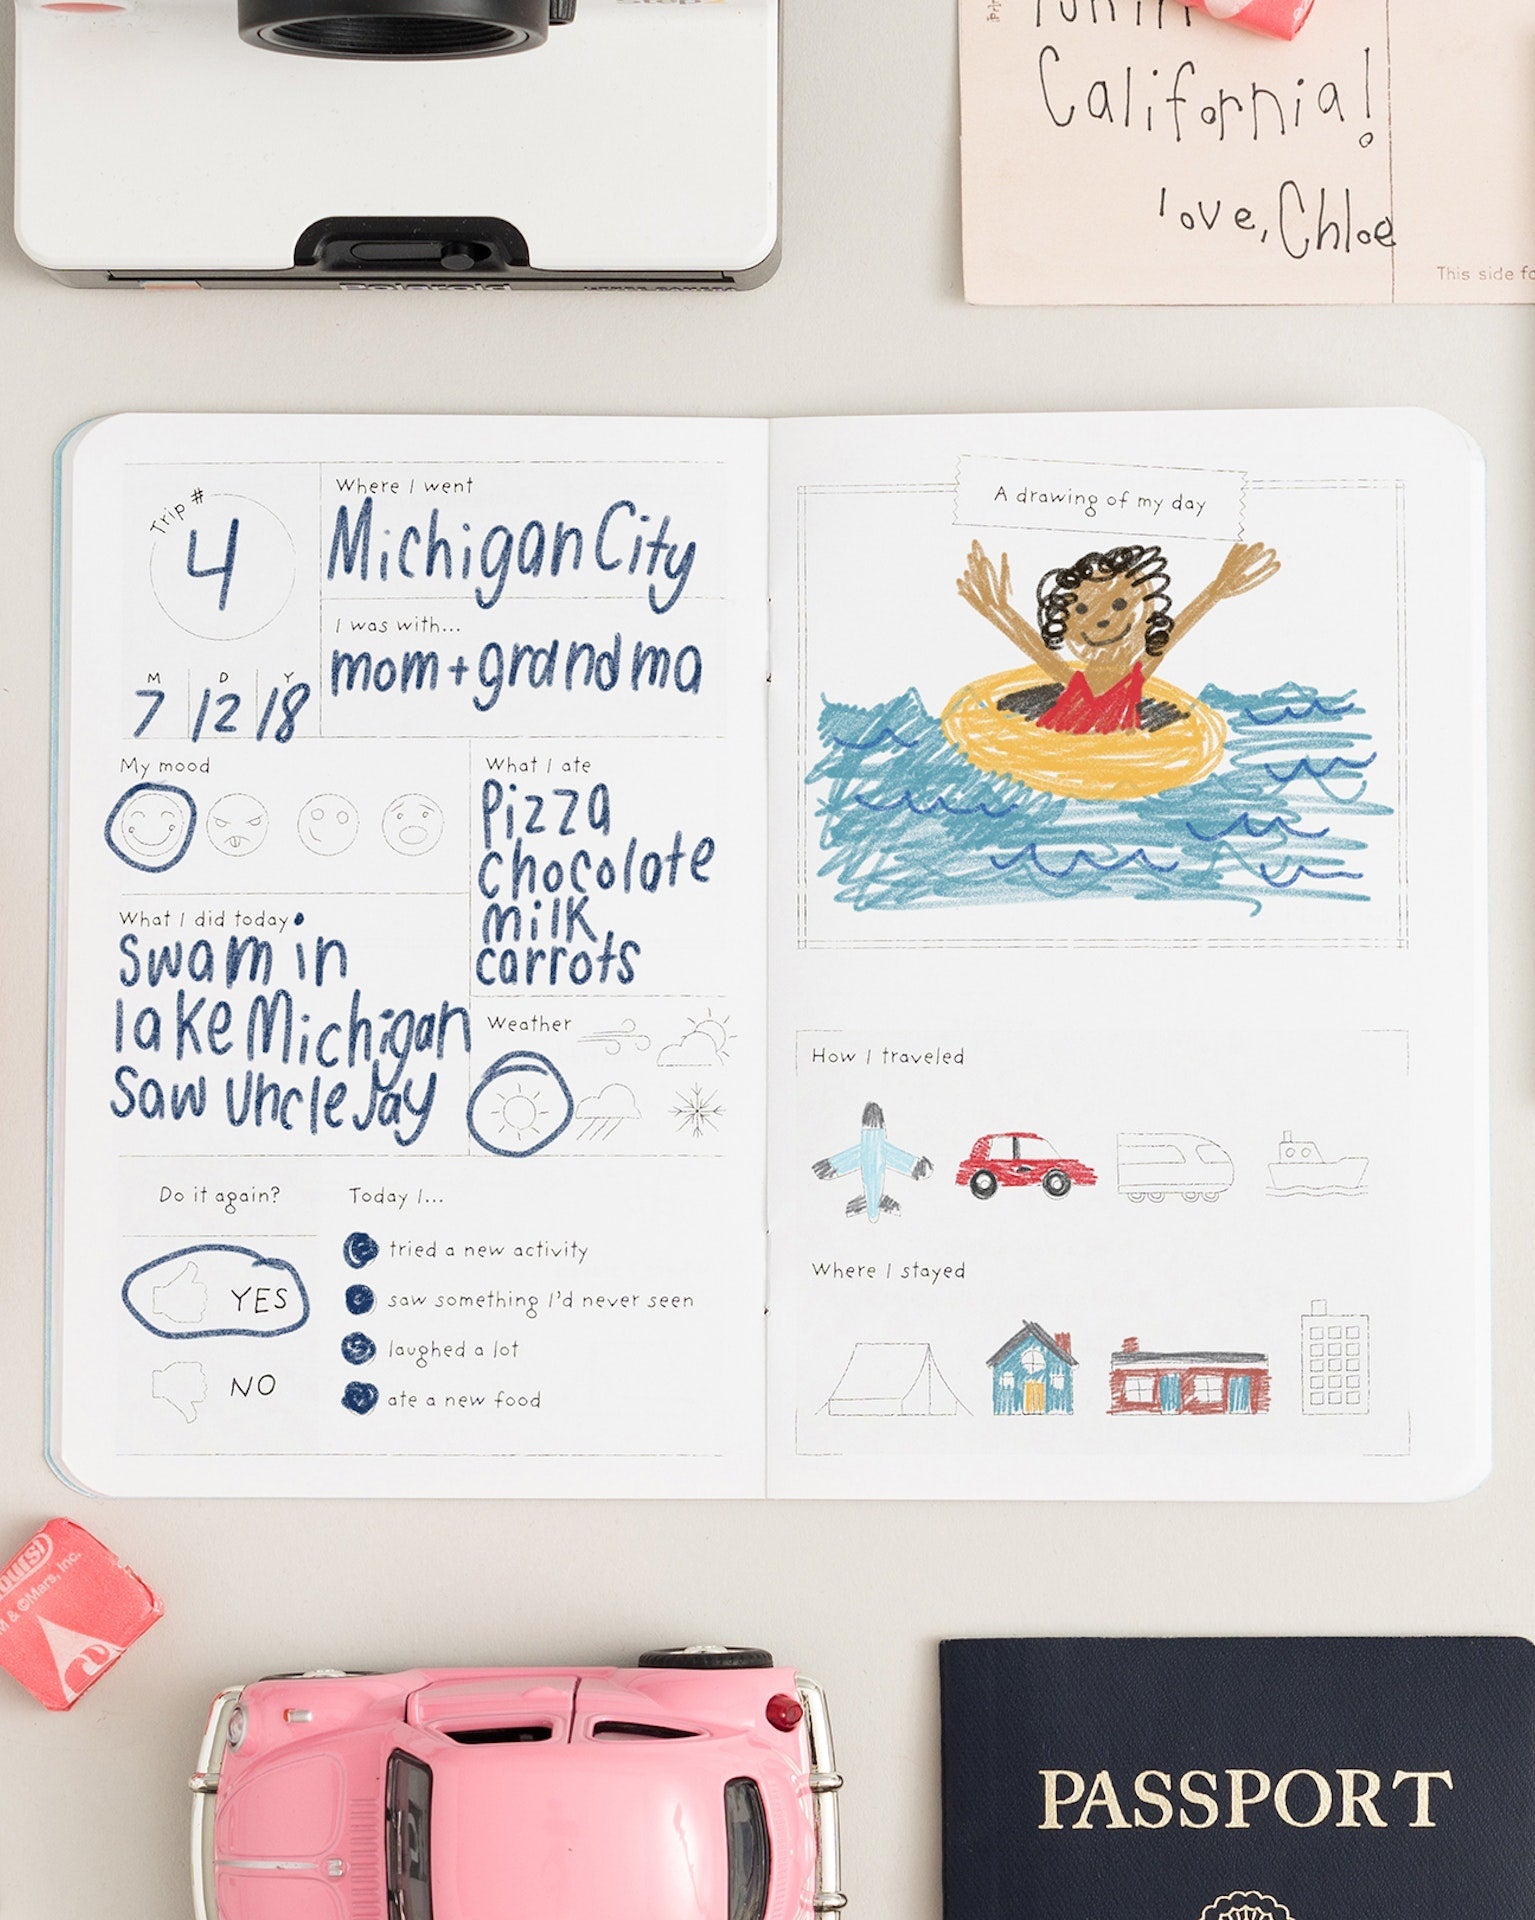 California!
love, Chloe
This side fo
Polaroid
Trip #
4
M D Y
7/12/18
Where I went
Michigan City
I was with...
mom + grandma
My mood
What I ate
Pizza
chocolate
milk
carrots
What I did today
Swam in
lake Michigan
Saw Uncle Jay
Weather
Do it again?
YES
NO
Today I...
tried a new activity
saw something I'd never seen
laughed a lot
ate a new food
A drawing of my day
How I traveled
Where I stayed
©Mars, Inc.
PASSPORT